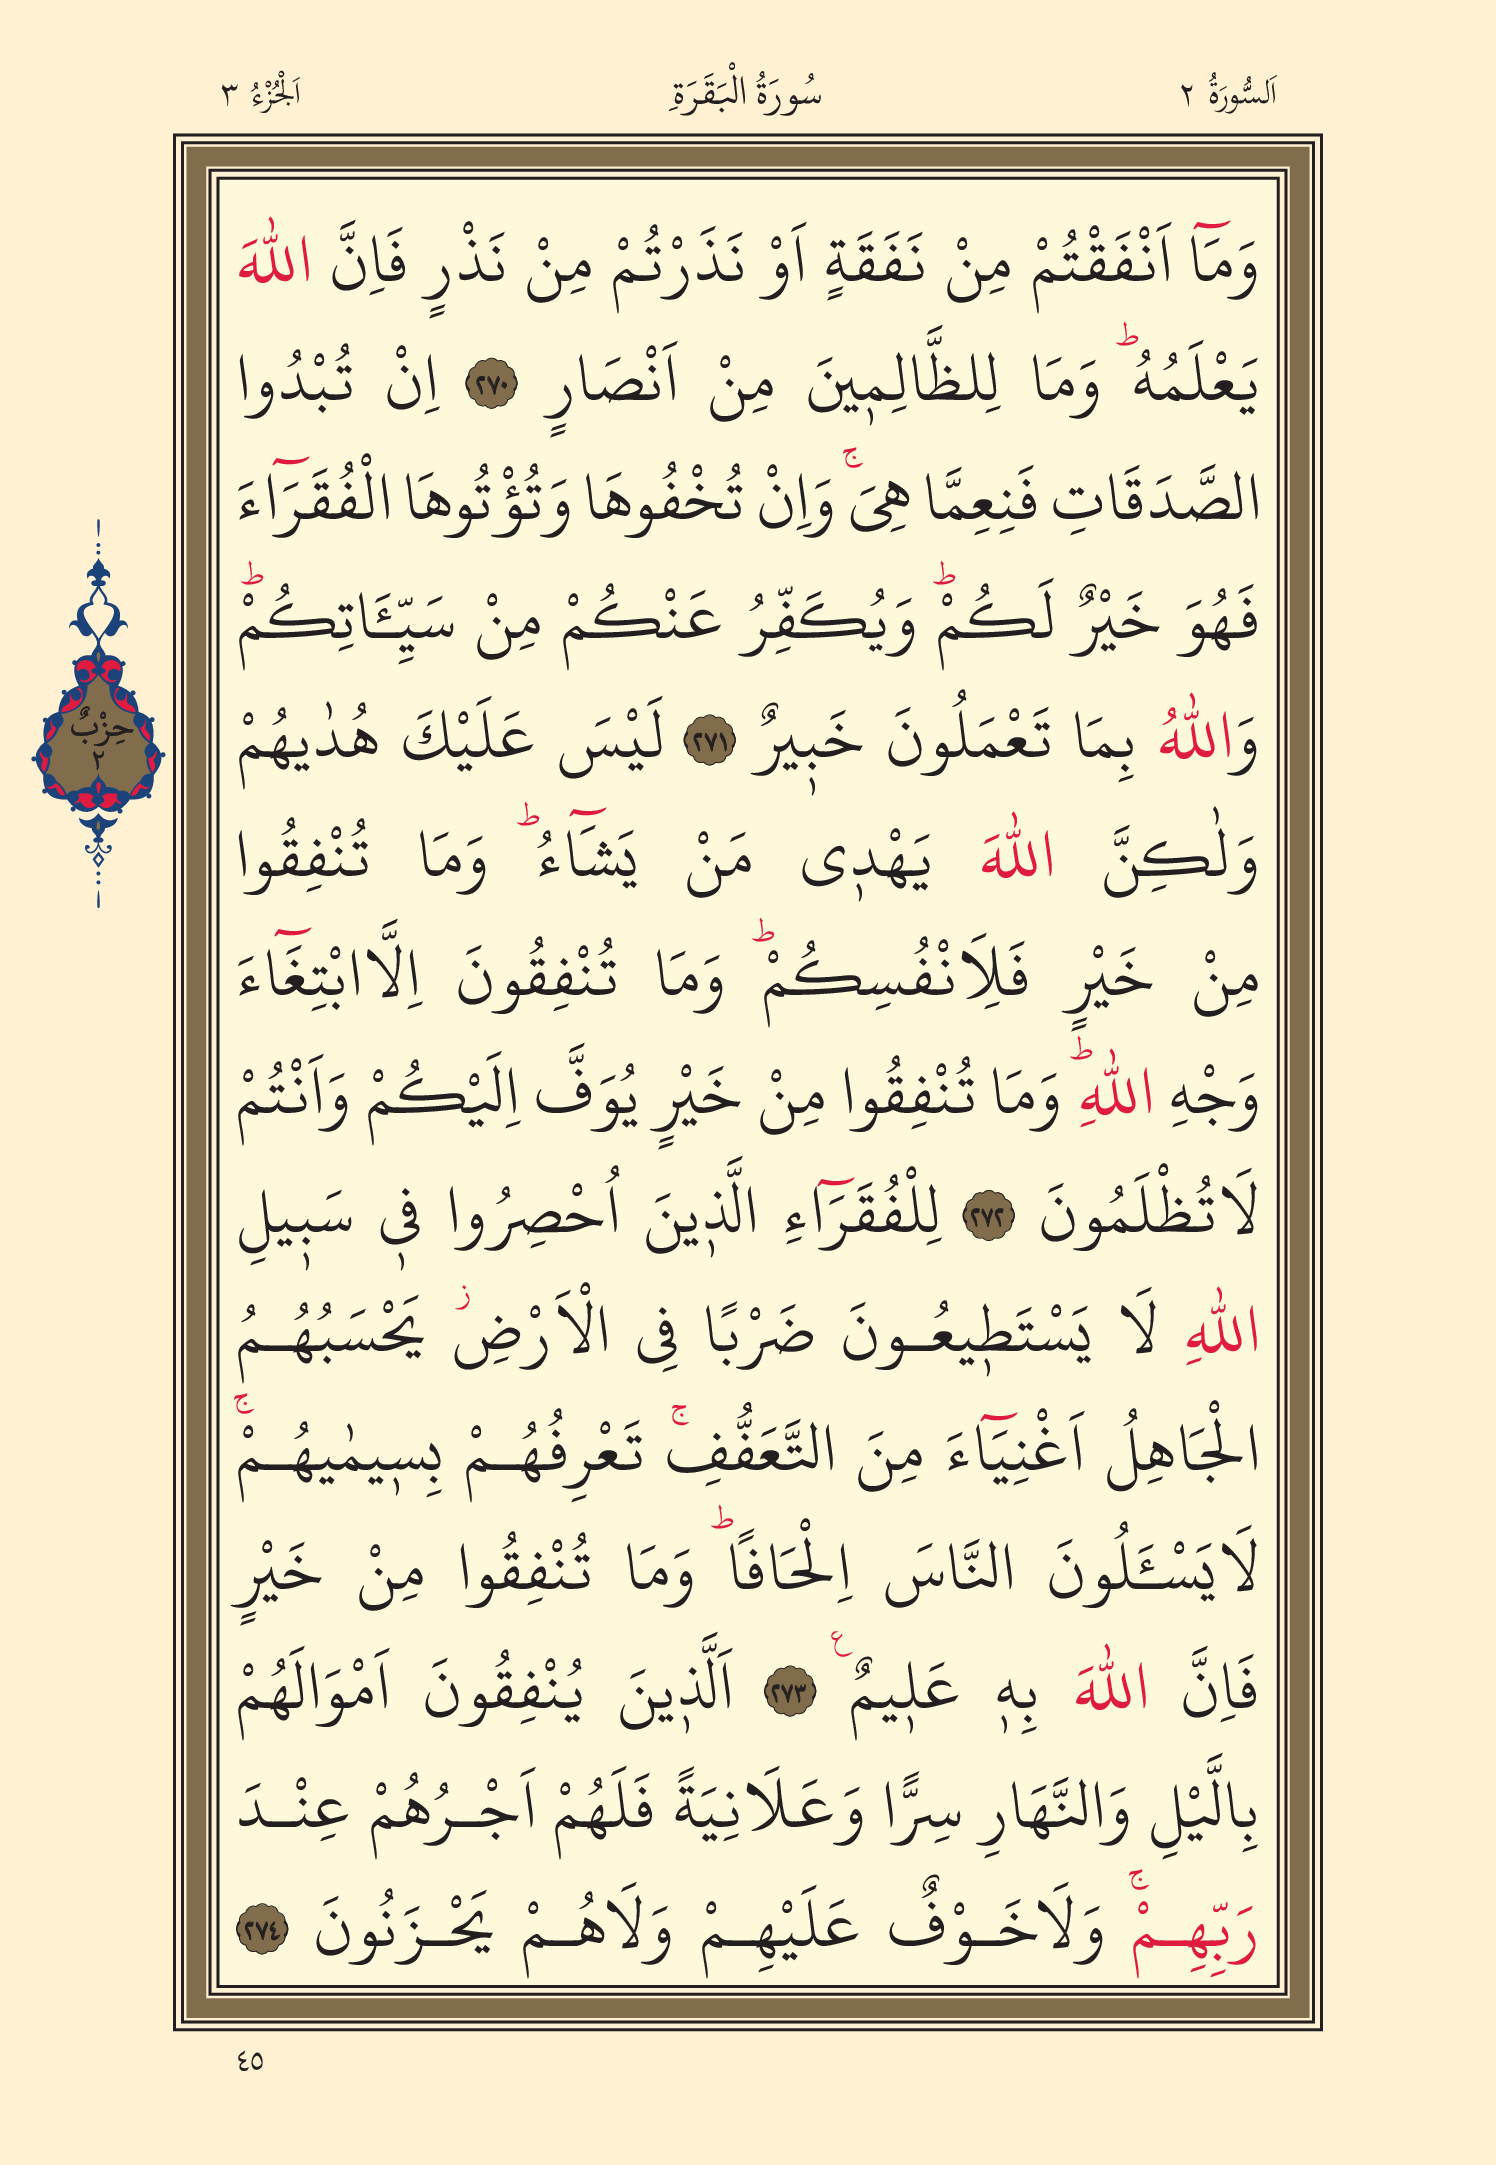 اَلسُّورَةُ ٢ سُورَةُ الْبَقَرَةِ اَلْجُزْءُ ٣
وَمَٓا اَنْفَقْتُمْ مِنْ نَفَقَةٍ اَوْ نَذَرْتُمْ مِنْ نَذْرٍ فَاِنَّ اللّٰهَ
يَعْلَمُهُ ۜ وَمَا لِلظَّالِم۪ينَ مِنْ اَنْصَارٍ ﴿٢٧٠﴾ اِنْ تُبْدُوا
الصَّدَقَاتِ فَنِعِمَّا هِيَ ۚ وَاِنْ تُخْفُوهَا وَتُؤْتُوهَا الْفُقَرَٓاءَ
فَهُوَ خَيْرٌ لَكُمْ ۜ وَيُكَفِّرُ عَنْكُمْ مِنْ سَيِّـَٔاتِكُمْ ۜ
وَاللّٰهُ بِمَا تَعْمَلُونَ خَب۪يرٌ ﴿٢٧١﴾ لَيْسَ عَلَيْكَ هُدٰيهُمْ
وَلٰكِنَّ اللّٰهَ يَهْد۪ى مَنْ يَشَٓاءُ ۜ وَمَا تُنْفِقُوا
مِنْ خَيْرٍ فَلِاَنْفُسِكُمْ ۜ وَمَا تُنْفِقُونَ اِلَّاابْتِغَٓاءَ
وَجْهِ اللّٰهِ ۜ وَمَا تُنْفِقُوا مِنْ خَيْرٍ يُوَفَّ اِلَيْكُمْ وَاَنْتُمْ
لَاتُظْلَمُونَ ﴿٢٧٢﴾ لِلْفُقَرَٓاءِ الَّذ۪ينَ اُحْصِرُوا ف۪ى سَب۪يلِ
اللّٰهِ لَا يَسْتَط۪يعُونَ ضَرْبًا فِى الْاَرْضِ ۘ يَحْسَبُهُمُ
الْجَاهِلُ اَغْنِيَٓاءَ مِنَ التَّعَفُّفِ ۚ تَعْرِفُهُمْ بِس۪يمٰيهُمْ ۚ
لَايَسْـَٔلُونَ النَّاسَ اِلْحَافًا ۜ وَمَا تُنْفِقُوا مِنْ خَيْرٍ
فَاِنَّ اللّٰهَ بِه۪ عَل۪يمٌ ع ﴿٢٧٣﴾ اَلَّذ۪ينَ يُنْفِقُونَ اَمْوَالَهُمْ
بِالَّيْلِ وَالنَّهَارِ سِرًّا وَعَلَانِيَةً فَلَهُمْ اَجْرُهُمْ عِنْدَ
رَبِّهِمْ ۚ وَلَاخَوْفٌ عَلَيْهِمْ وَلَاهُمْ يَحْزَنُونَ ﴿٢٧٤﴾
حِزْبٌ
٢
٤٥